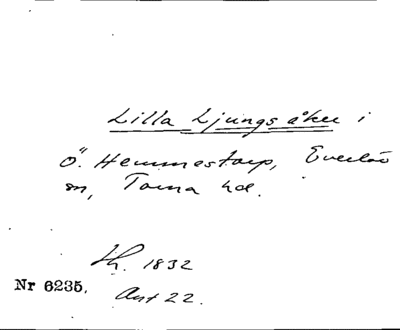 Lilla Ljungs åker i
Ö. Hemmestorp, Everlöv
sn, Torna hd.
Sk. 1832
Nr 6235. Ant 22.